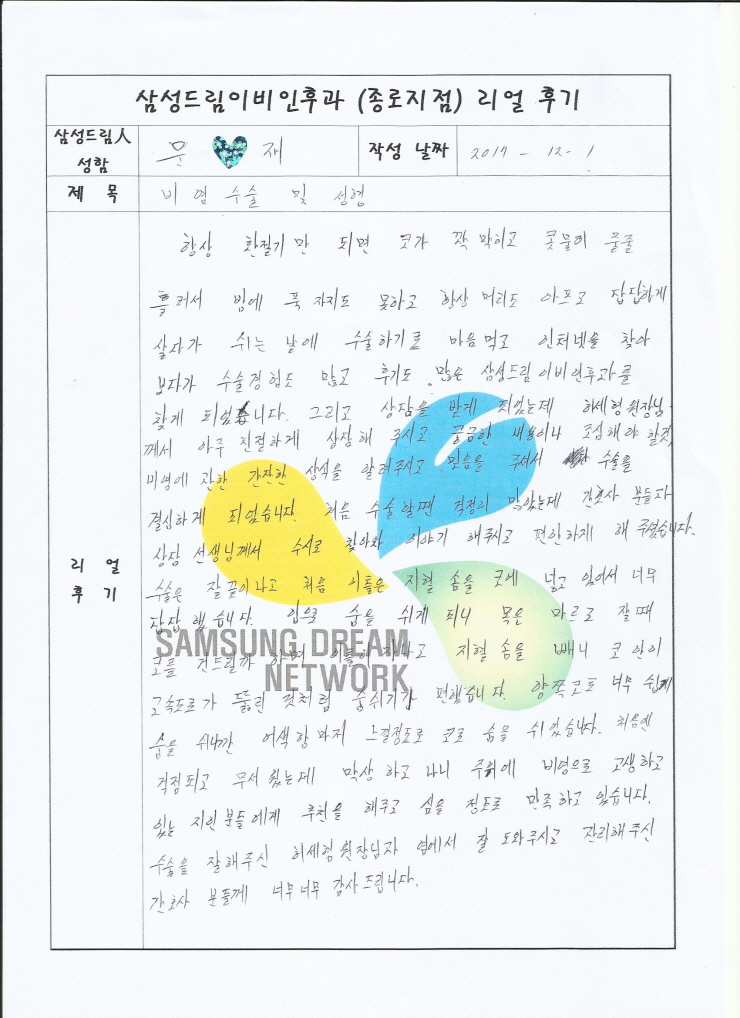 삼성드림이비인후과 (종로지점) 리얼 후기
삼성드림人 성함
문 재
작성 날짜
2017 - 12 - 1
제 목
비염수술 및 성형
리 얼 후 기
항상 환절기만 되면 코가 꽉 막히고 콧물이 줄줄
흘러서 밤에 푹 자지도 못하고 항상 머리도 아프고 답답하게
살다가 쉬는 날에 수술하기로 마음먹고 인터넷을 찾아
보다가 수술경험도 많고 후기도 많은 삼성드림이비인후과를
찾게 되었습니다. 그리고 상담을 받게 되었는데 허세형원장님
께서 아주 친절하게 상담해 주시고 궁금한 내용이나 조심해야할것
비염에 관한 간단한 상식을 알려주시고 믿음을 주셔서 수술을
결심하게 되었습니다. 처음 수술할땐 걱정이 많았는데 간호사 분들과
상담 선생님께서 수시로 찾아와 이야기 해주시고 편안하게 해 주셨습니다.
수술은 잘 끝이나고 처음 이틀은 지혈 솜을 코에 넣고 있어서 너무
답답했습니다. 입으로 숨을 쉬게 되니 목은 마르고 잘때
코를 건드릴까 하며 이틀이 지나고 지혈 솜을 빼니 코 안이
고속도로가 뚫린 것처럼 숨쉬기가 편했습니다. 양쪽코로 너무 쉽게
숨을 쉬니깐 어색함마저 느낄정도로 코로 숨을 쉬었습니다. 처음엔
걱정되고 무서웠는데 막상 하고 나니 주위에 비염으로 고생하고
있는 지인분들에게 추천을 해주고 싶을 정도로 만족하고 있습니다.
수술을 잘해주신 허세형원장님과 옆에서 잘 도와주시고 관리해주신
간호사 분들께 너무너무 감사드립니다.
SAMSUNG DREAM
NETWORK